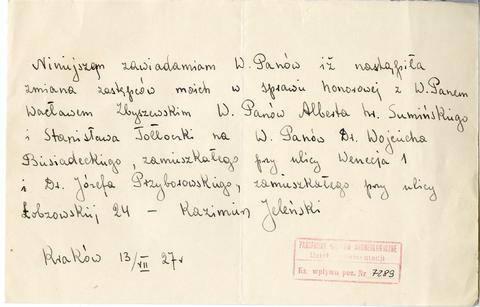 Niniejszem zawiadamiam W. Panów iż nastąpiła
zmiana zastępców moich w sprawie honorowej z W. Panem
Wacławem Zbyszewskim W. Panów Alberta hr. Sumińskiego
i Stanisława Tołłoczki na W. Panów Dr. Wojciecha
Busiadeckiego, zamieszkałego przy ulicy Wenecja 1
i Dr. Józefa Przyborowskiego, zamieszkałego przy ulicy
Łobzowskiej 24 – Kazimierz Jeleński
Kraków 13/VII 27r
PAŃSTWOWE MUZEUM ARCHEOLOGICZNE
Dział Dokumentacji
Ks. wpływu poz. Nr 7289